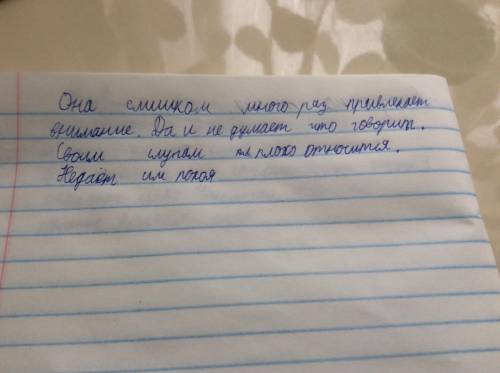 Она смишком много раз привлекает
внимание. Да и не думает что говорит.
Своим слугам плохо относится.
Недаёт им покоя